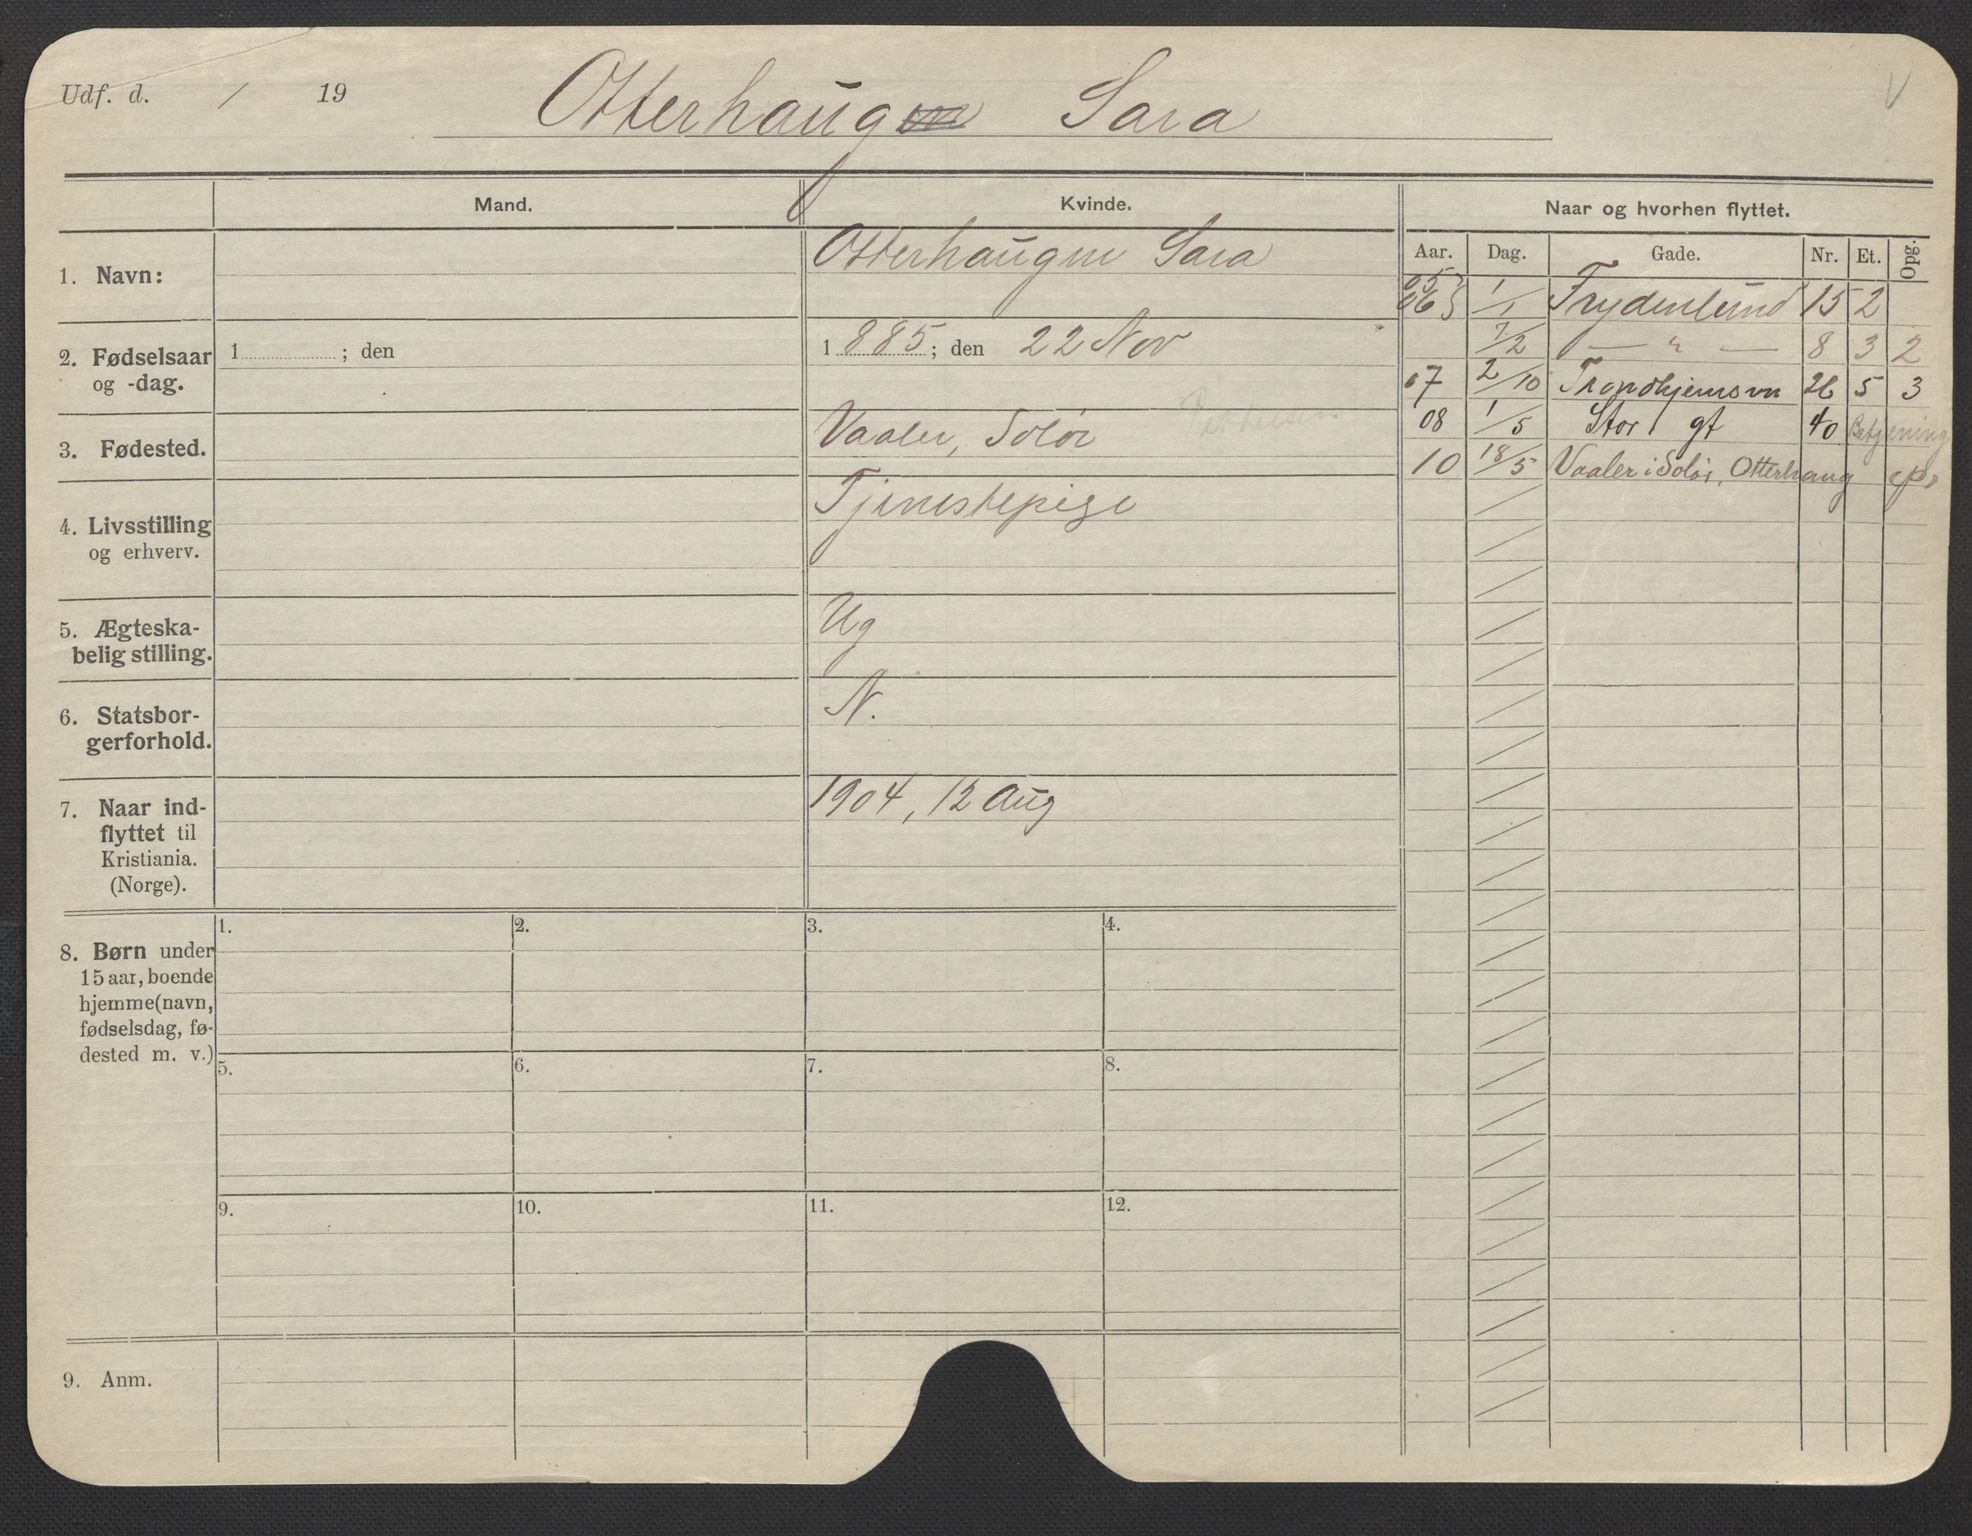 Udf. d. / 19
Otterhaugen Sara
V
Mand.
Kvinde.
Naar og hvorhen flyttet.
Aar. Dag. Gade. Nr. Et. Opg.
1. Navn:
Otterhaugen Sara
05 06 } 1/1 Frydenlund 15 2
7/2 — " — 8 3 2
07 2/10 Trondhjemsvn 26 5 3
08 1/5 Stor gt 40 Betjening
10 18/5 Vaaler i Solør, Otterhaug
2. Fødselsaar
og -dag.
1 ; den
1885; den 22 Nov
3. Fødested.
Vaaler, Solør
4. Livsstilling
og erhverv.
Tjenestepige
5. Ægteska-
belig stilling.
Ug
6. Statsbor-
gerforhold.
N.
7. Naar ind-
flyttet til
Kristiania.
(Norge).
1904, 12 Aug
8. Børn under
15 aar, boende
hjemme (navn,
fødselsdag, fø-
dested m. v.)
1. 2. 3. 4.
5. 6. 7. 8.
9. 10. 11. 12.
9. Anm.